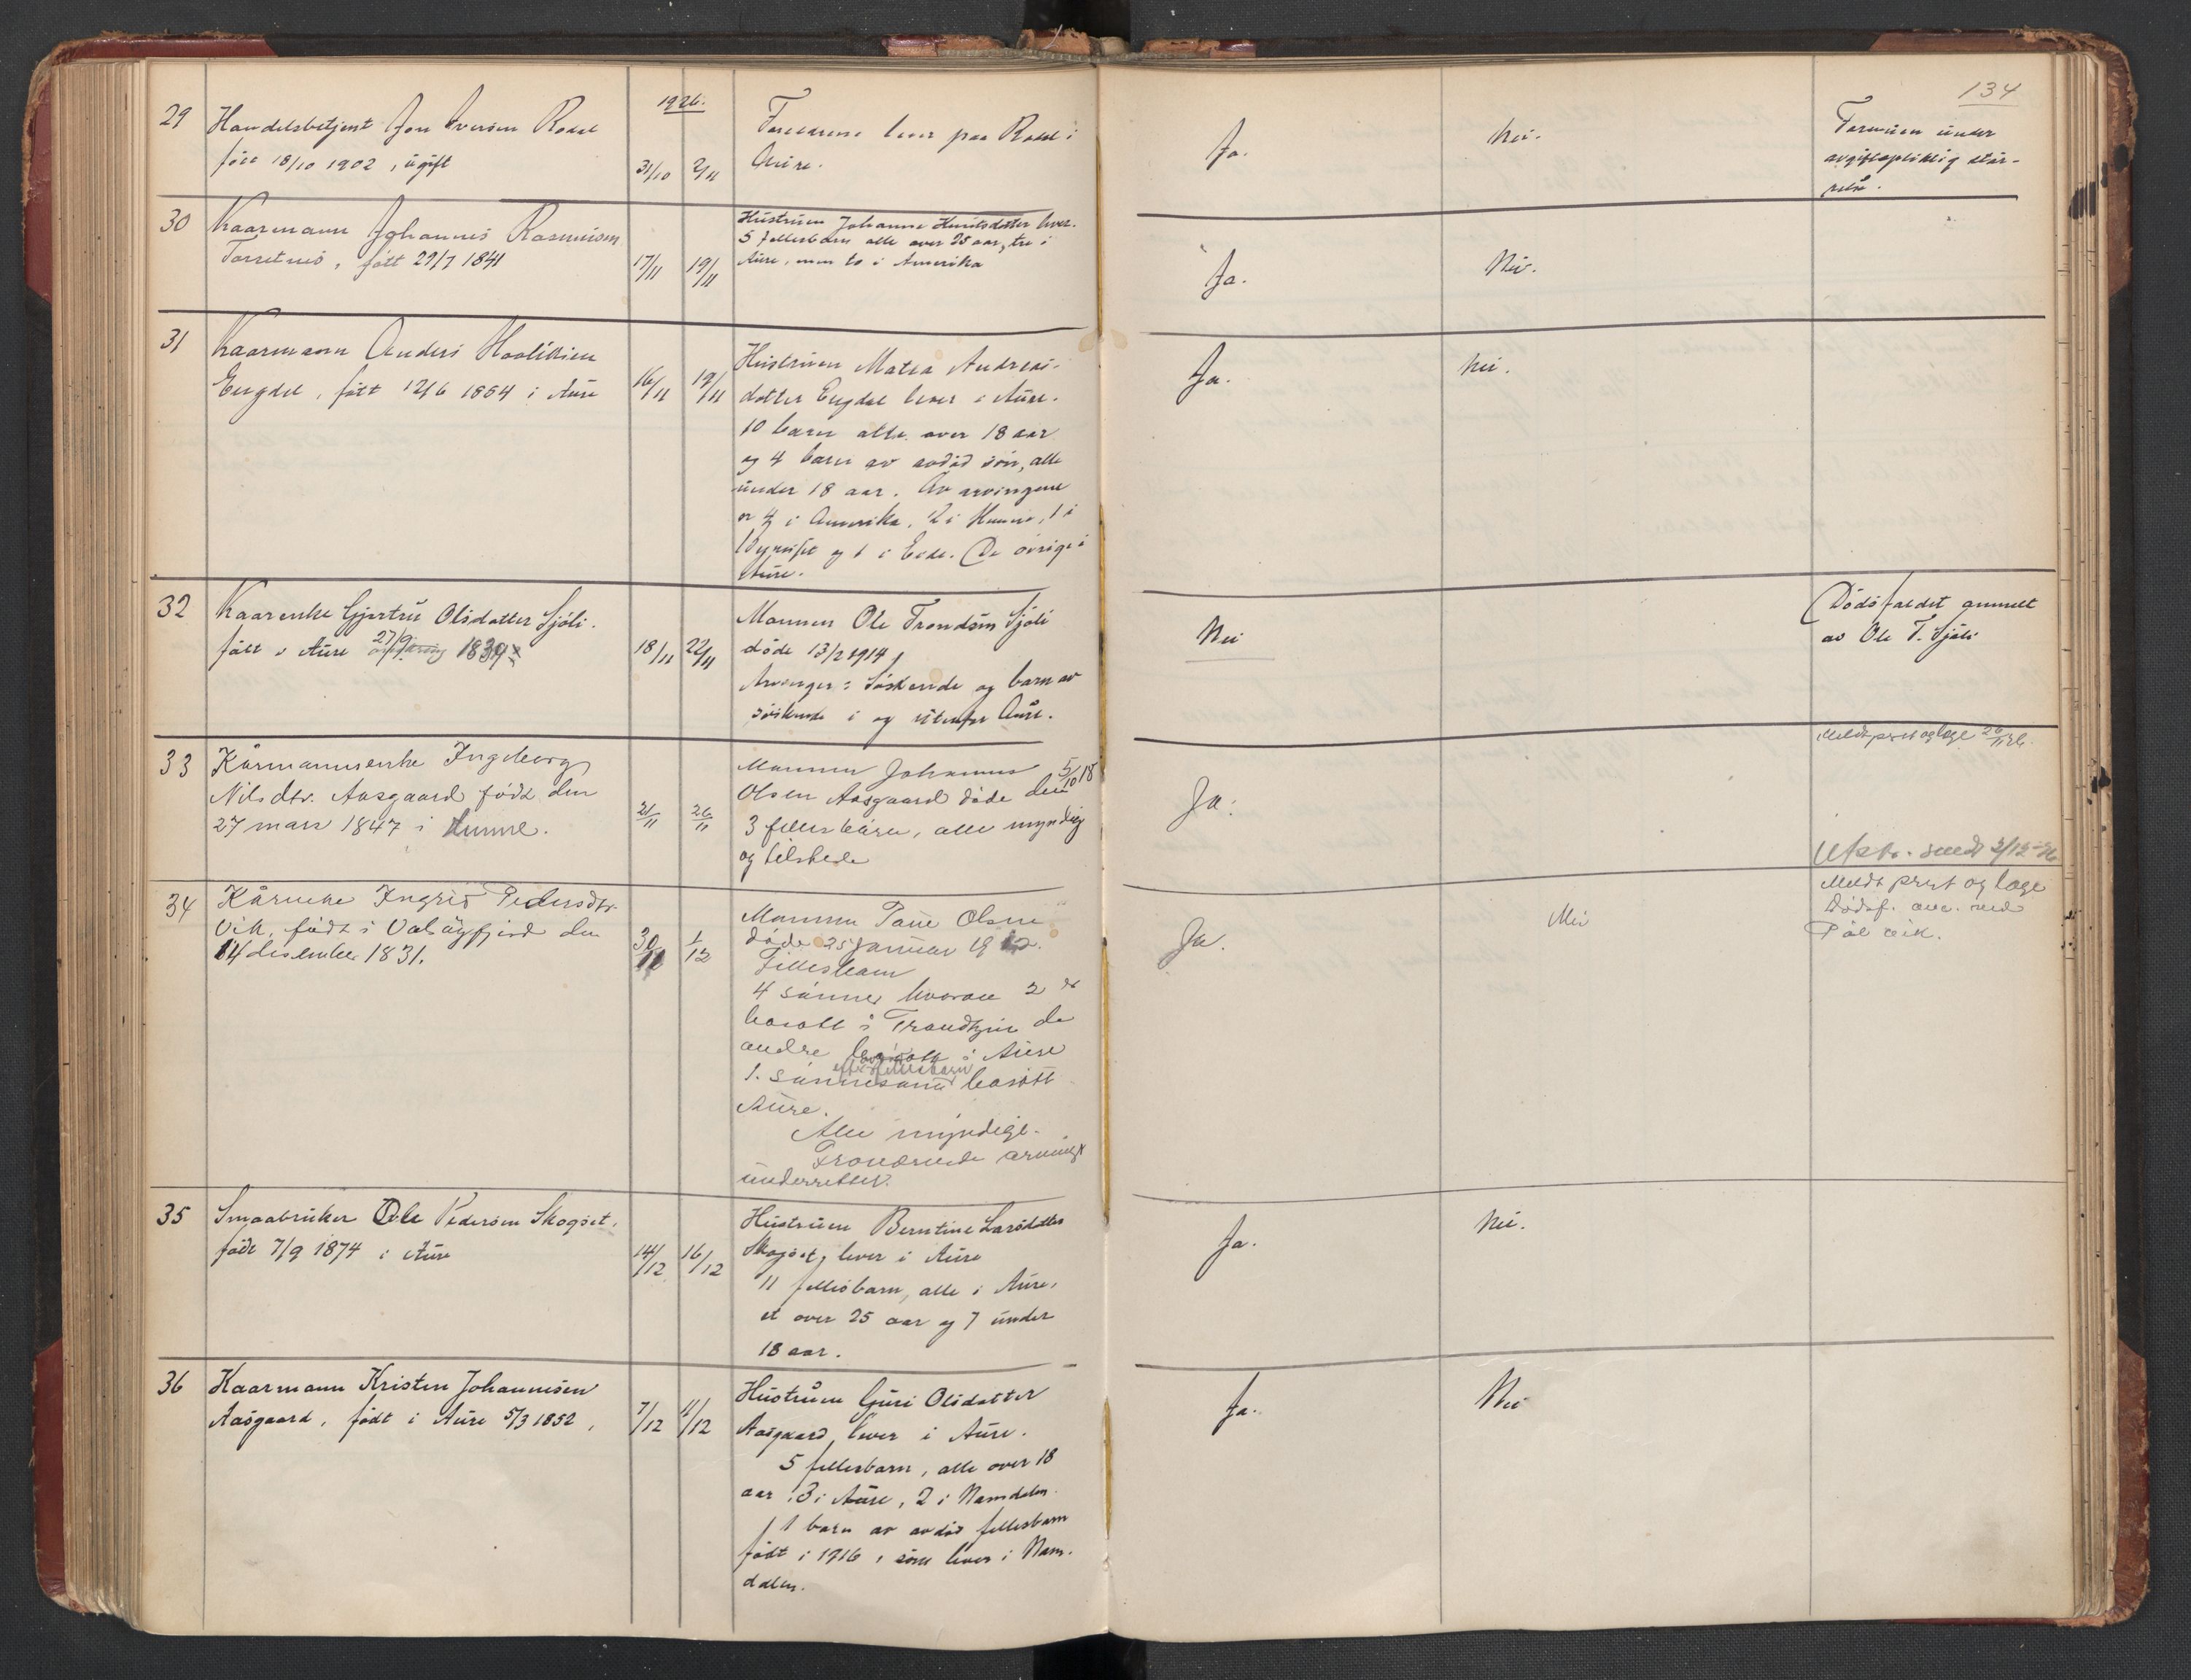 134
1926.
29 Handelsbetjent Jon Iversen Rodal
född 18/10 1902, ugift
31/10 2/11
Forældrene lever paa Rodal i
Aure.
Ja.
Nei.
Formuen under
avgiftspliktig stør-
relse.
30 Kaarmann Johannes Rasmussen
Torsetnes, født 29/7 1841
17/11 19/11
Hustruen Johanne Knutsdotter lever.
5 fellesbarn alle over 25 aar, tre i
Aure, men to i Amerika
Ja.
Nei.
31 Kaarmann Anders
Engdal, født 12/6 1854 i Aure
16/11 19/11
Hustruen Matea Andreas-
dotter Engdal lever i Aure.
10 barn alle over 18 aar
og 4 barn av avdød søn, alle
under 18 aar. Av arvingene
er 4 i Amerika, 2 i Hemne, 1 i
og 1 i Eide. De øvrige i
Aure.
Ja.
Nei.
32 Kaarenke Gjertru Olsdatter Sjøli.
født i Aure 27/9 1839
18/11 22/11
Mannen Ole Trondsen Sjøli
døde 13/2 1914
Arvinger: Søskende og barn av
søskende i og utenfor Aure.
Nei
Dødsfaldet anmeldt
av Ole T. Sjøli
33 Kårmannsenke Ingeborg
Nilsdtr. Aasgaard født den
27 mars 1847 i Hemne.
21/11 26/11
Mannen Johannes
Olsen Aasgaard døde den 5/10 18
3 fellesbarn, alle myndig
og tilstede
Ja.
Meldt prest og læge 26/11 26.
Utskr. sendt 3/12-26
34 Kårenke Ingrid Pedersdtr.
Vik, født i Valsøyfjord den
14 desember 1831.
30/11 1/12
Mannen Paul Olsen
døde 25 januar 19
Fellesbarn
4 sønner hvorav 2 er
bosatt i Trondhjem de
andre bosatt i Aure
1. sønnesønn bosatt
Aure.
Alle myndige.
Fraværende arvinger
underrettet.
Ja.
Nei
Meldt prest og læge
Dødsf. anm. ved
Pål Vik.
35 Smaabruker Ole Pedersen Skogset,
født 7/9 1874 i Aure
14/12 16/12
Hustruen Berntine Larsdatter
Skogset, lever i Aure
11 fellesbarn, alle i Aure,
et over 25 aar og 7 under
18 aar.
Ja.
Nei.
36 Kaarmann Kristen Johannesen
Aasgaard, født i Aure 5/3 1852,
7/12 11/12
Hustruen Guri Olsdatter
Aasgaard, lever i Aure.
5 fellesbarn, alle over 18
aar, 3 i Aure, 2 i Namdalen
1 barn av avdød fellesbarn
født i 1916, som lever i Nam-
dalen.
Ja.
Nei